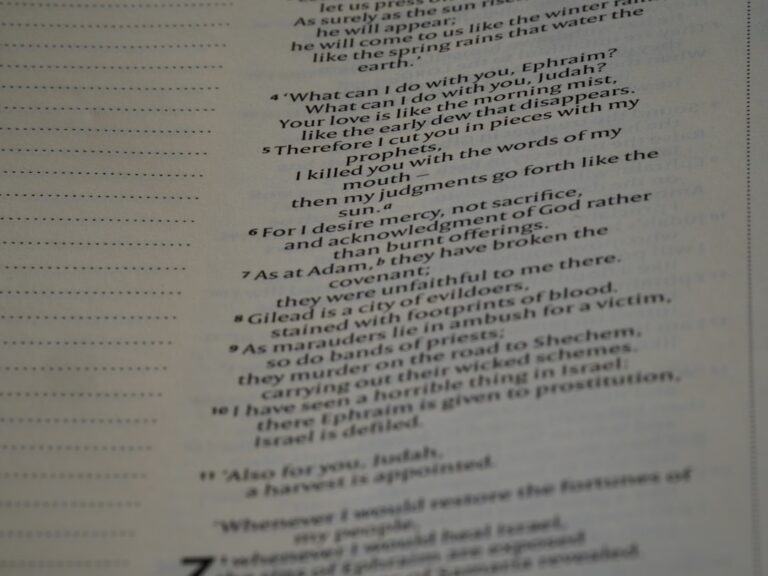 let us press on
As surely as the sun rises
he will appear;
he will come to us like the winter rains
like the spring rains that water the
earth.’
4 ‘What can I do with you, Ephraim?
What can I do with you, Judah?
Your love is like the morning mist,
like the early dew that disappears.
5 Therefore I cut you in pieces with my
prophets,
I killed you with the words of my
mouth –
then my judgments go forth like the
sun.a
6 For I desire mercy, not sacrifice,
and acknowledgment of God rather
than burnt offerings.
7 As at Adam,b they have broken the
covenant;
they were unfaithful to me there.
8 Gilead is a city of evildoers,
stained with footprints of blood.
9 As marauders lie in ambush for a victim,
so do bands of priests;
they murder on the road to Shechem,
carrying out their wicked schemes.
10 I have seen a horrible thing in Israel:
there Ephraim is given to prostitution,
Israel is defiled.
11 ‘Also for you, Judah,
a harvest is appointed.
‘Whenever I would restore the fortunes of
my people,
7 1 whenever I would heal Israel,
the sins of Ephraim are exposed
of Samaria revealed.